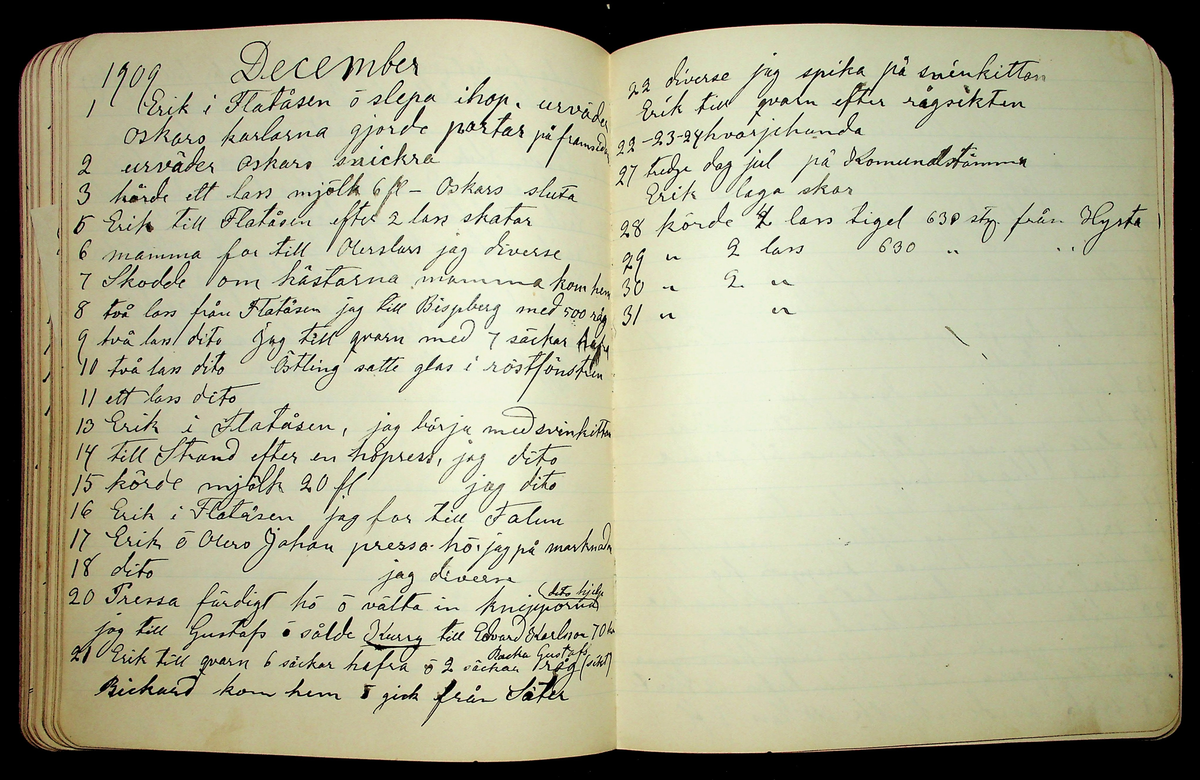 1909 December
1 Erik i Flatåsen ö slepa ihop. urväder
Oskars karlarna gjorde portar på framsidan
2 urväder Oskars snickra
3 körde ett lass mjölk 6 fl - Oskars sluta
5 Erik till Flatåsen efter 2 lass skatar
6 mamma for till Olerslars jag diverse
7 Skodde om hästarna mamma kom hem
8 två lass från Flatåsen jag till Bispberg med 500 råg
9 två lass dito jag till qvarn med 7 säckar hafra
10 två lass dito Östling satte glas i röstfönstren
11 ett lass dito
13 Erik i Flatåsen, jag börja med svinkittan
14 till Strand efter en höpress, jag dito
15 körde mjölk 20 fl jag dito
16 Erik i Flatåsen jag for till Falun
17 Erik ö Olers Johan pressa hö, jag på marknad
18 dito jag diverse
20 Pressa färdigt hö ö välta in knipporna (dito hjelp
jag till Gustafs ö sålde Kurry till Edvard Karlsson 70 kr
Backa Gustafs
21 Erik till qvarn 6 säckar hafra ö 2 säckar råg (sikt)
Rickard kom hem ö gick från Säter
22 diverse jag spika på svinkittan
Erik till qvarn efter rågsikten
22-23-24 hvarjehanda
27 tredje dag jul på Komunalstämma
Erik laga skor
28 körde 2 lass tigel 630 sty från Hysta
29 " 2 lass 630 " "
30 " 2 "
31 " "